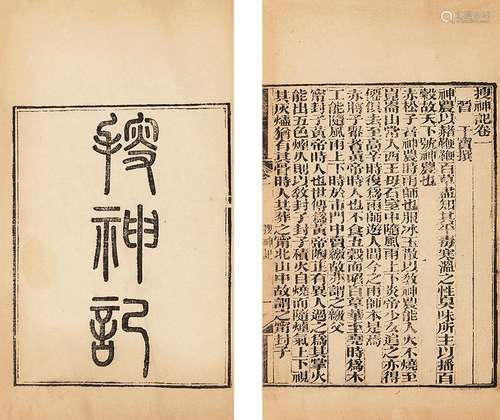 搜神記
搜神記卷一
晉 干寶撰
神農以赭鞭鞭百草盡知其平毒寒溫之性臭味所主以播百
穀故天下號神農也
赤松子者神農時雨師也服冰玉散以教神農能入火不燒至
崑崙山常入西王母石室中隨風雨上下炎帝少女追之亦得
僊俱去至高辛時復為雨師遊人間今之雨師本是焉
赤將子轝者黃帝時人也不食五穀而啗百草華至堯時為木
工能隨風雨上下時於市門中賣繳故亦謂之繳父
甯封子黃帝時人也世傳為黃帝陶正有異人過之為其掌火
能出五色煙久則以教封子封子積火自燒而隨煙氣上下視
其灰燼猶有其骨時人共葬之甯北山中故謂之甯封子
搜神記